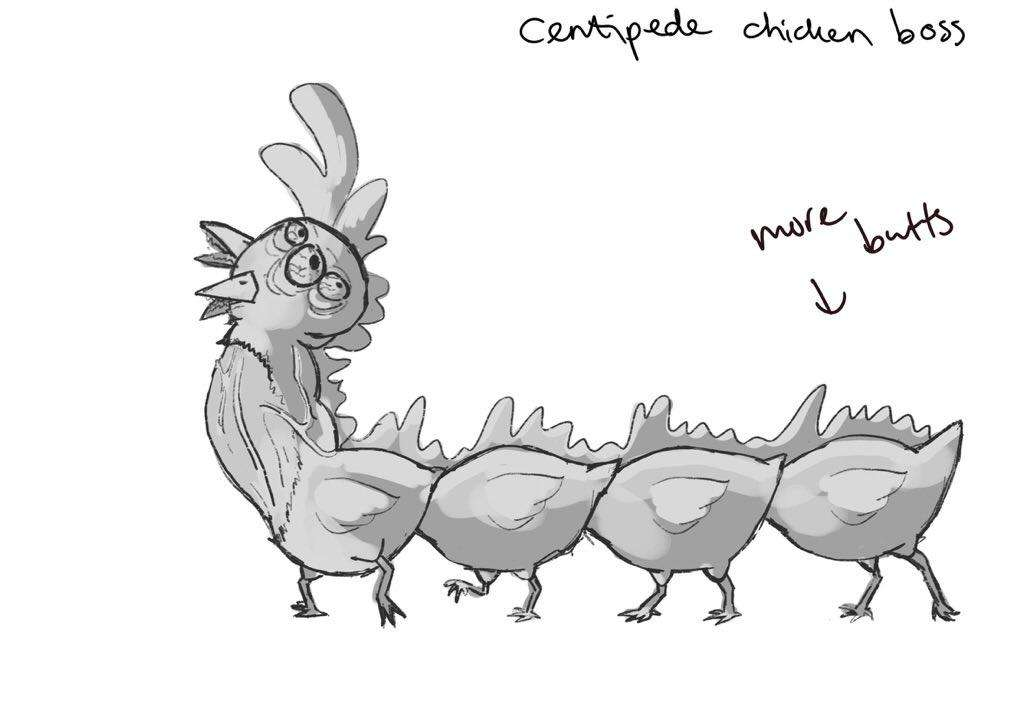 Centipede chicken boss
more butts